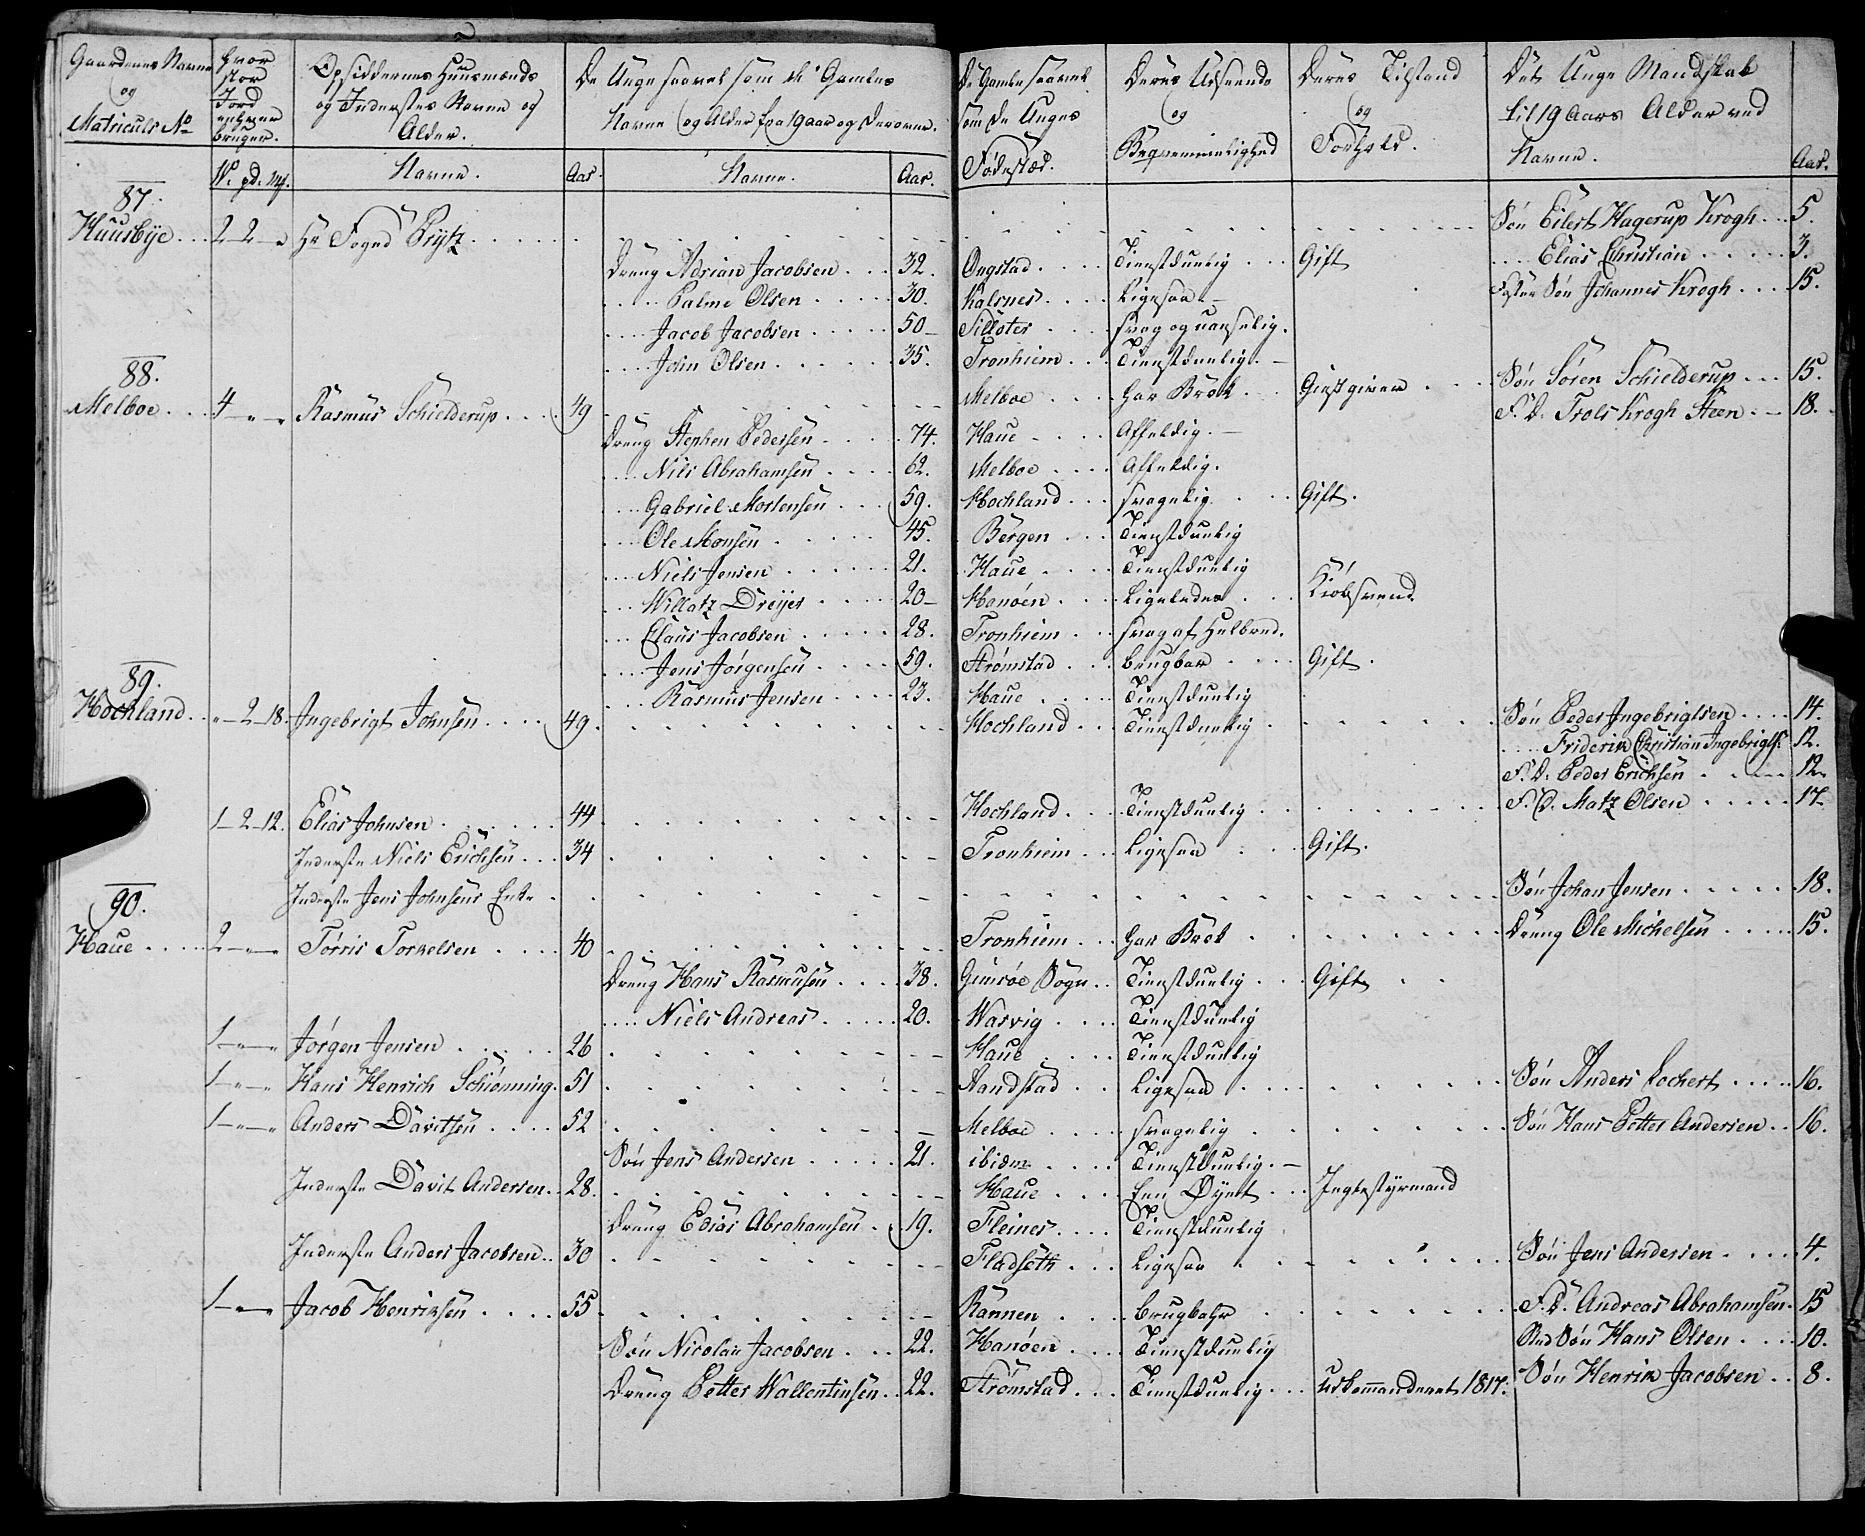 Gaardenes Navne og Matriculs No
hvor stor Jord enhver bruger.
Opsiddernes Huusmænds og Indersters Navne og Alder.
De Unge saavel som de Gamles Navne og Alder fra 19 aar og derover.
De Gamle saavel som de Unges Fødested.
Deres Udseende og Beqvemmelighed
Deres Tilstand og Forhold.
Det Unge Mandskab til 19 Aars Alder ved Navne.
W. pd. mk. Navne. Aar. Navne. Aar. Aar.
87.
Søn Eilert Hagerup Krogh 5.
Huusbye 2 - 2 - " Hr Foged Prytz
Dreng Adrian Jacobsen 32. Ongstad Tienstdygtig Gift Elias Christian 3.
Palme Olsen 30. Kalsnes Ligesaa Foster Søn Johannes Krogh 15.
Jacob Jacobsen 50 svag og uanselig.
88.
John Olsen 35. Tronhiem Tienstdygtig.
Melboe 4 - " - " Rasmus Schielderup 49 Melboe har Brok Giestgiver Søn Søren Schielderup 15.
Dreng Stephen Pedersen 74. Haue Affeldig. F. D. Trols Krogh Steen 18.
Nils Abrahamsen 62. Melboe Affeldig.
Gabriel Mortensen 59. Hochland svagelig Gift.
Ole Monsen 45. Bergen Tienstdygtig
Niels Jensen 21. Haue Tienstdygtig
Willatz Dreyer 20 Hanøen Ligeledes Kiøbsvend
Claus Jacobsen 28. Tronhiem svag af Helbred.
89.
Jens Jørgensen 59. Strømstad brugbar Gift.
Rasmus Jensen 23. Haue Tienstdygtig
Hochland " - 2 - 18. Ingebrigt Johnsen 49. Hochland Tienstdygtig Søn Peder Ingebrigtsen 14.
Friderik Christian Ingebrigts. 12.
F. D. Peder Erichsen 12.
1 - 2 - 12. Elias Johnsen 44 Hochland Tienstdygtig F. D. Matz Olsen 17
Inderste Niels Erichsen 34 Tronhiem Ligesaa Gift.
Inderste Jens Johnsens Enke Søn Johan Jensen 18.
90.
Haue 2 - " - " Torris Torkelsen 40 Tronhiem har Brok Dreng Ole Michelsen 15.
Dreng Hans Rasmusen 38. Gimsøe Sogn Tienstdygtig Gift
Niels Andreas 20. Warvig Tienstdygtig
1 - " - " Jørgen Jensen 26 Haue Tienstdygtig
1 - " - " Hans Henrich Schiønning 51 Sandstad Ligesaa Søn Anders Lochert 16.
1 - " - " Anders Davitsen 52 Melboe svagelig Søn Hans Petter Andersen 16.
Søn Jens Andersen 21. ibidm Tienstdygtig.
Inderste Davit Andersen 28. Haue Een Øyet Jagtestyrmand
Dreng Edias Abrahamsen 19. Fleines Tienstdygtig
Inderste Anders Jacobsen 30 Fladseth Ligesaa Søn Jens Andersen 4.
1 - " - " Jacob Henriksen 55 Rannen brugbahr F. D. Andreas Abrahamsen 15
Søn Nicolai Jacobsen 22. Hanøen Tienstdygtig Søn Hans Olsen 10.
Dreng Petter Wallentinsen 22. Strømstad Tienstdygtig Udkommanderet 1817. Søn Henrik Jacobsen 8.